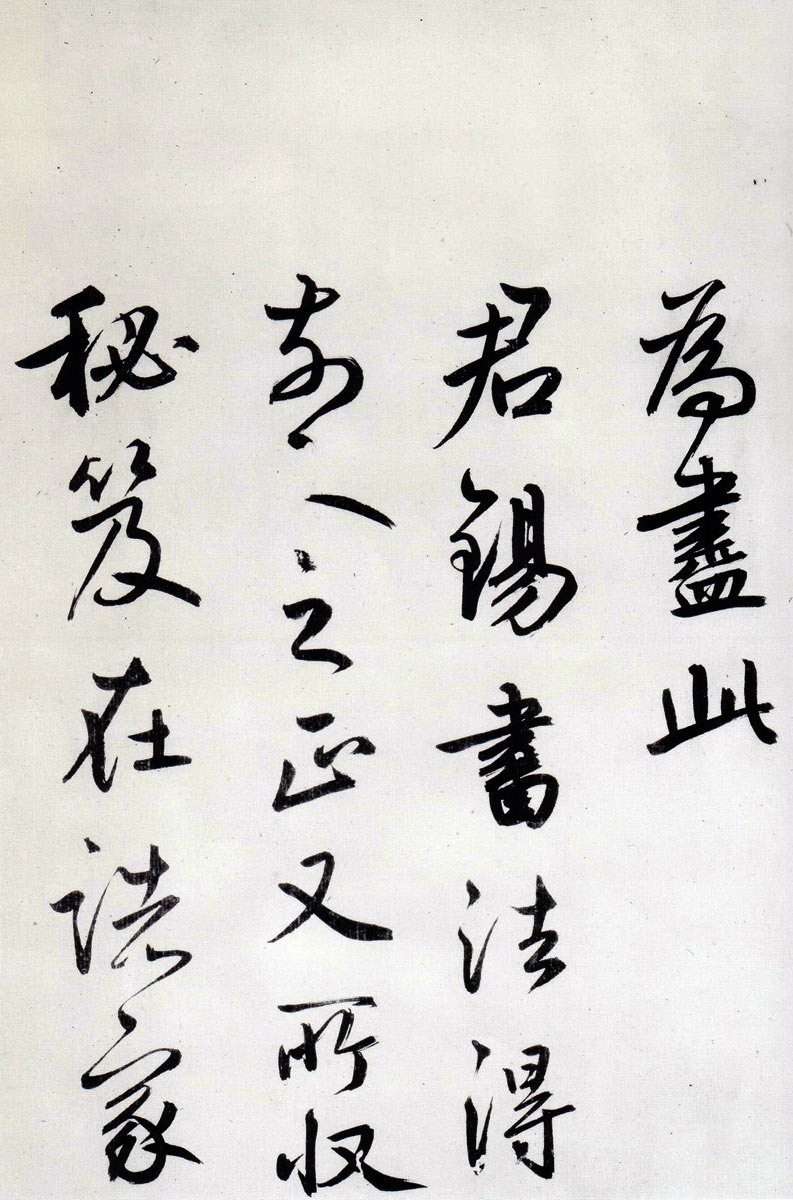 為盡此
君錫書法得
前人之正又所收
秘笈在諸家